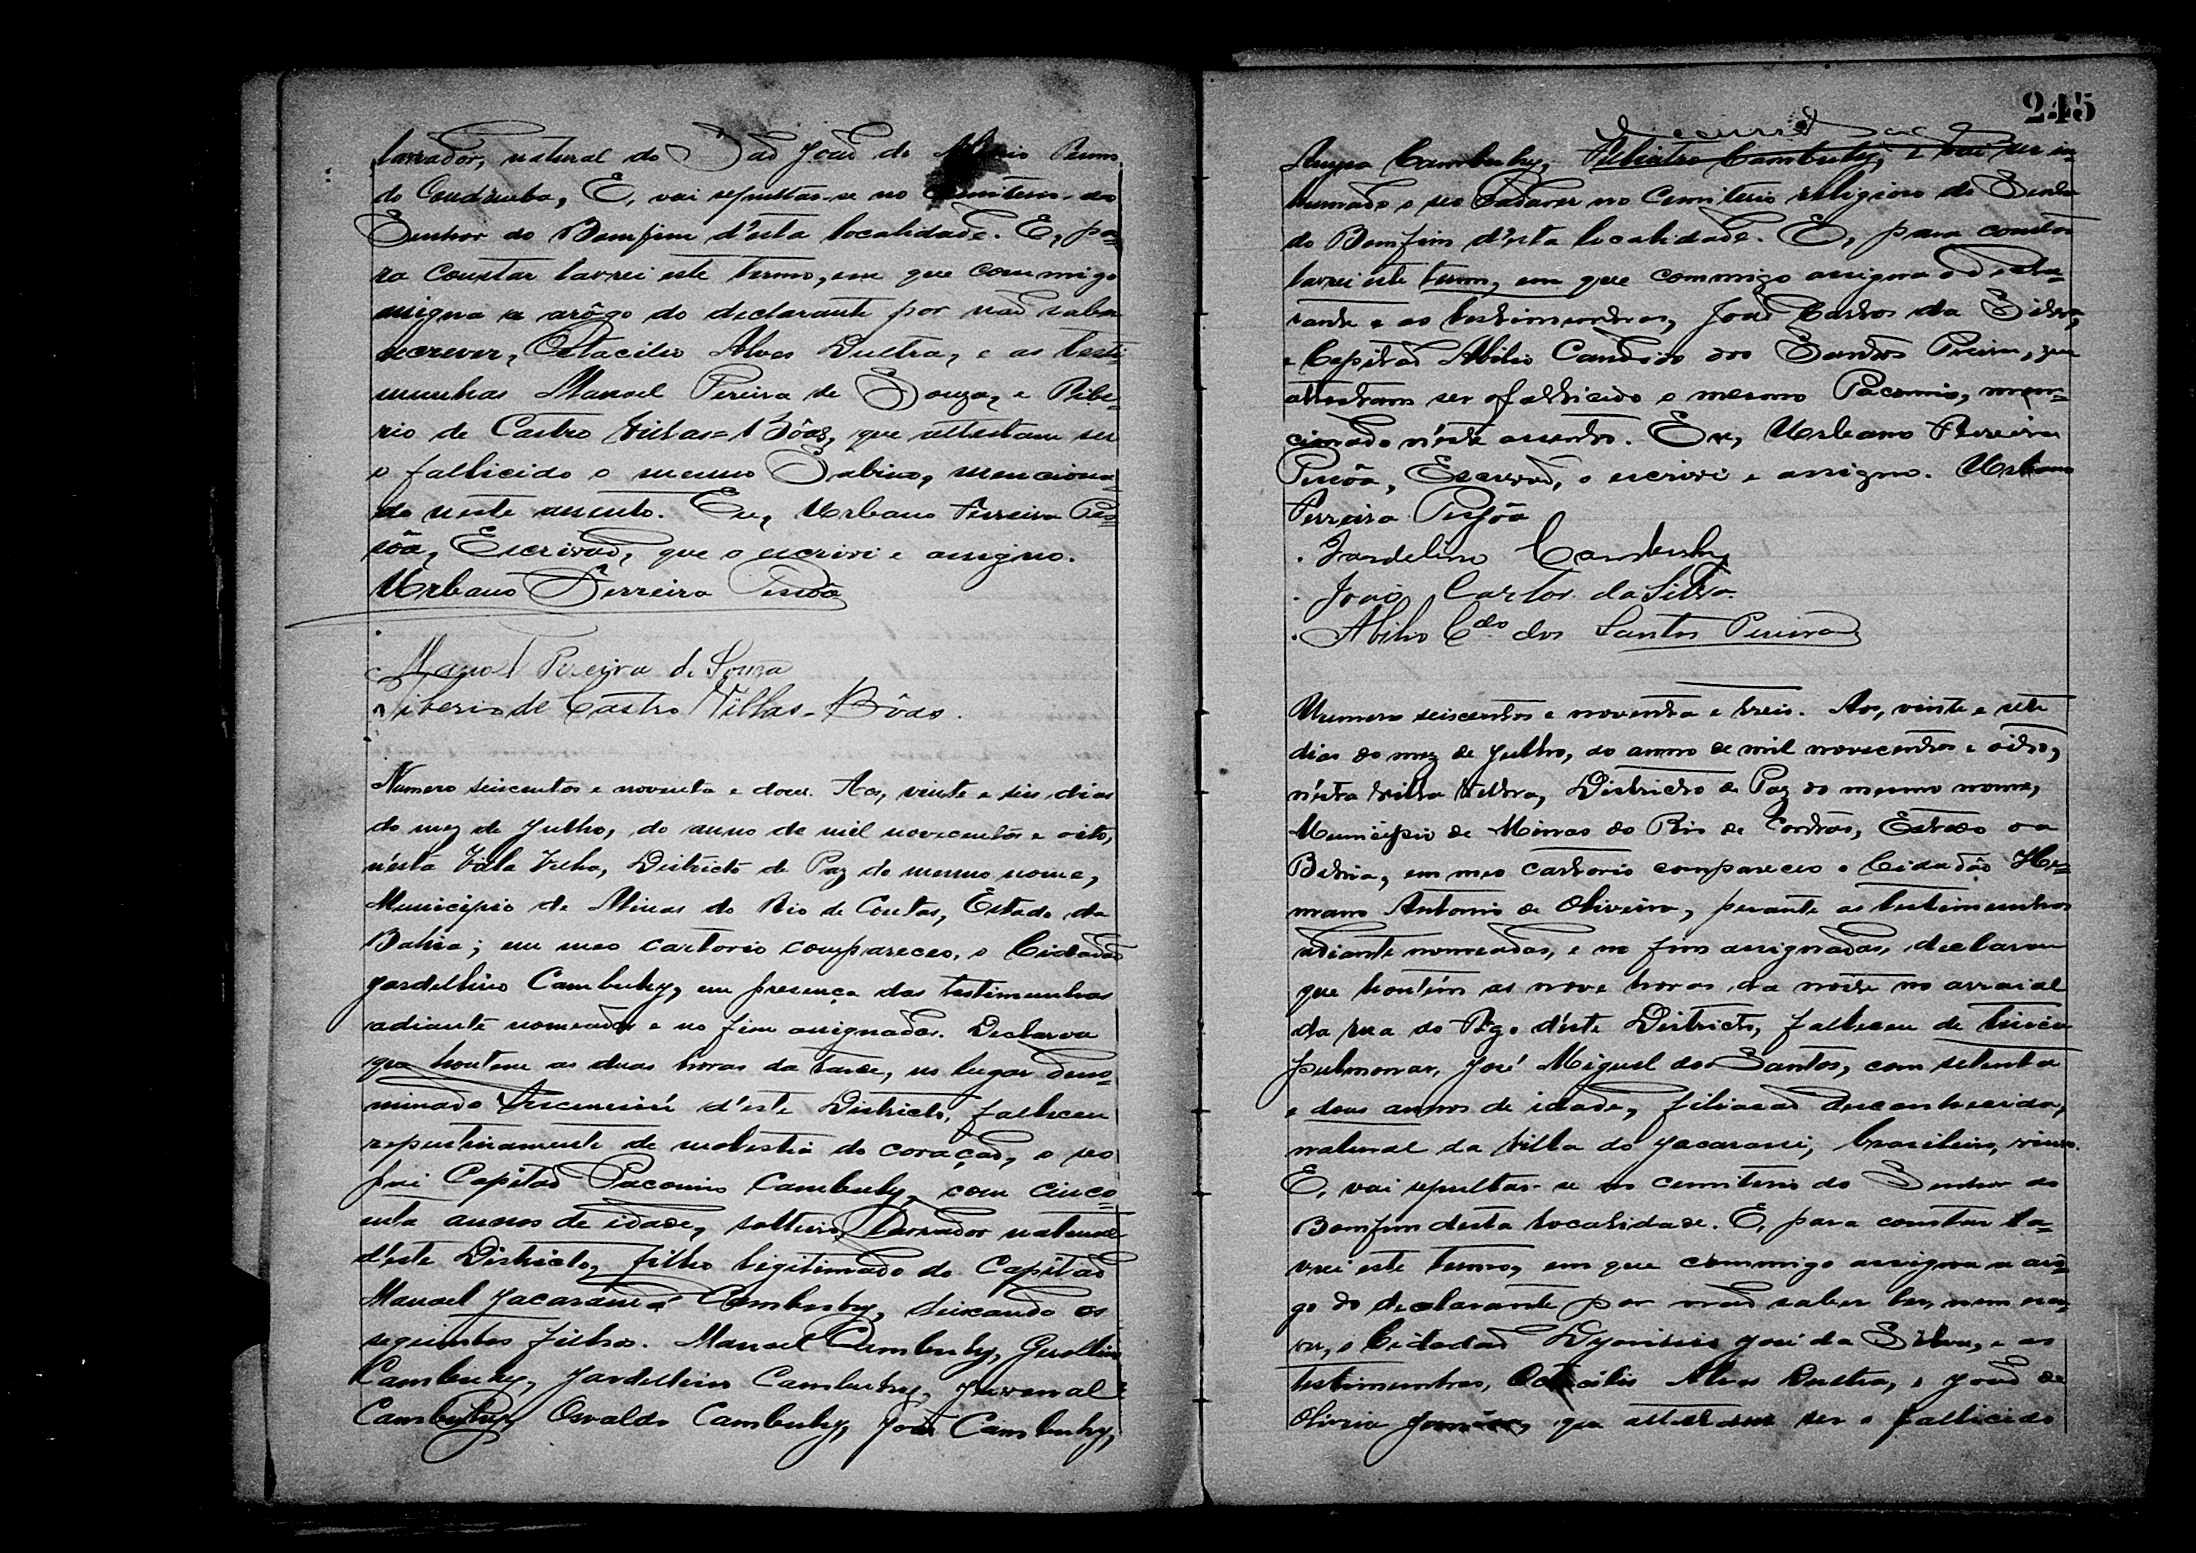 lavrador, natural de São João do
do Condeuba, E, vai sepultar-se no Cemiterio do
Senhor do Bomfim d'esta localidade. E, pa-
ra constar lavrei este termo, em que commigo
assigna a arôgo do declarante por não saber
escrever, Octacilio Alves Dultra, e as teste-
munhas Manoel Pereira de Souza, e Tibe-
rio de Castro Villas-Bôas, que attestam ser
o fallicido o mesmo Sabino, menciona-
do neste assento. Eu, Urbano Ferreira Pes-
sôa, Escrivão, que o escrivi e assigno.
Urbano Ferreira Pessôa
Manoel Pereira de Souza
Tiberio de Castro Villas-Bôas.
Numero seiscentos e noventa e dous. Aos, vinte e seis dias
do mez de Julho, do anno de mil novecentos e oito,
n'esta Villa Velha, Districto de Paz do mesmo nome,
Municipio de Minas do Rio de Contas, Estado da
Bahia; em meo cartorio compareceo, o Cidadão
Jardelino Cambuhy, em presença das testimunhas
adiante nomeadas e no fim assignadas. Declarou
que hontem as duas horas da tarde, no lugar deno-
minado d'este Districto, falleceu
repentinamente de molestia do coração, o seo
pai Capitão Pacomio Cambuhy, com cinco-
enta annos de idade, solteiro, lavrador natural
d'este Districto, filho legitimado do Capitão
Manoel Jacaranda Cambuhy, deixando os
seguintes filhos. Manoel Cambuhy,
Cambuhy, Jardelino Cambuhy, Juvenal
Cambuhy, Osvaldo Cambuhy, João Cambuhy,
245
Cambuhy, Cambuhy, e vai ser in-
humado o seo Cadaver no Cemiterio religioso do Senhor
do Bomfim d'esta localidade. E, para constar
lavrei este termo, em que commigo assigna o decla-
rante e as testimunhas, João Carlos da Silva,
e Capitão Abilio Candido dos Santos Pereira, que
attestam ser o fallicido o mesmo Pacomio, men-
cionado n'este assento. Eu, Urbano Ferreira
Pessôa, Escrivão, o escrivi e assigno. Urbano
Ferreira Pessôa
Jardelino Cambuhy
João Carlos da Silva.
Abilio Cdo dos Santos Pereira
Numero seiscentos e noventa e treis. Aos, vinte e sete
dias do mez de Julho, do anno de mil novecentos e oito,
n'esta Villa Velha, Districto de Paz do mesmo nome,
Municipio de Minas do Rio de Contas, Estado da
Bahia, em meo cartorio compareceo o Cidadão Her-
mano Antonio de Oliveira, perante as testimunhas
adiante nomeadas, e no fim assignadas, declarou
que hontem as nove horas da noite no arraial
da rua do d'este Districto, falleceu de tisica
pulmonar, José Miguel dos Santos, com setenta
e dous annos de idade, filiacão desconhecida,
natural da Villa do Jacaraci, brasileiro, viuvo.
E, vai sepultar-se no cemiterio do Senhor do
Bomfim desta localidade. E, para constar la-
vrei este termo, em que commigo assigna a arô-
go do declarante por não saber ler, nem escre-
ver, o Cidadão Dyonisio José da Silva, e as
testimunhas, Octacilio Alves Dultra, e João de
Oliveira que attestam ser o fallicido